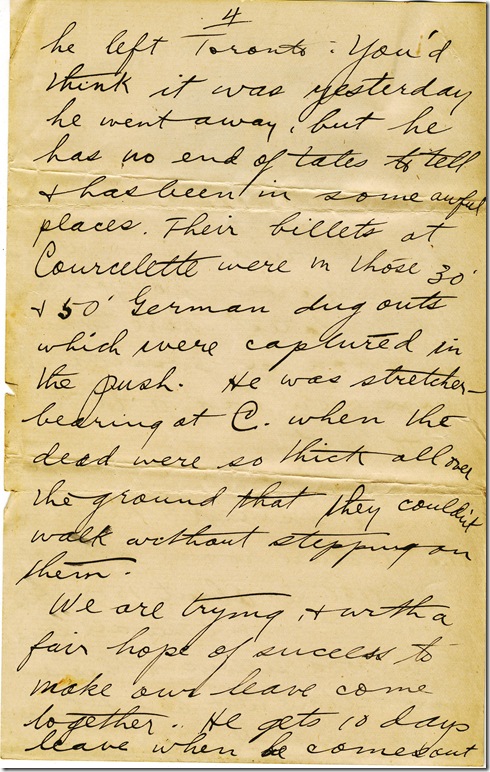 4
he left Toronto. You'd
think it was yesterday
he went away, but he
has no end of tales to tell
& has been in some awful
places. Their billets at
Courcelette were in those 30'
& 50' German dug outs
which were captured in
the push. He was stretcher-
bearing at C. when the
dead were so thick all over
the ground that they couldn't
walk without stepping on
them.
We are trying, & with a
fair hope of success to
make our leave come
together. He gets 10 days
leave when he comes out